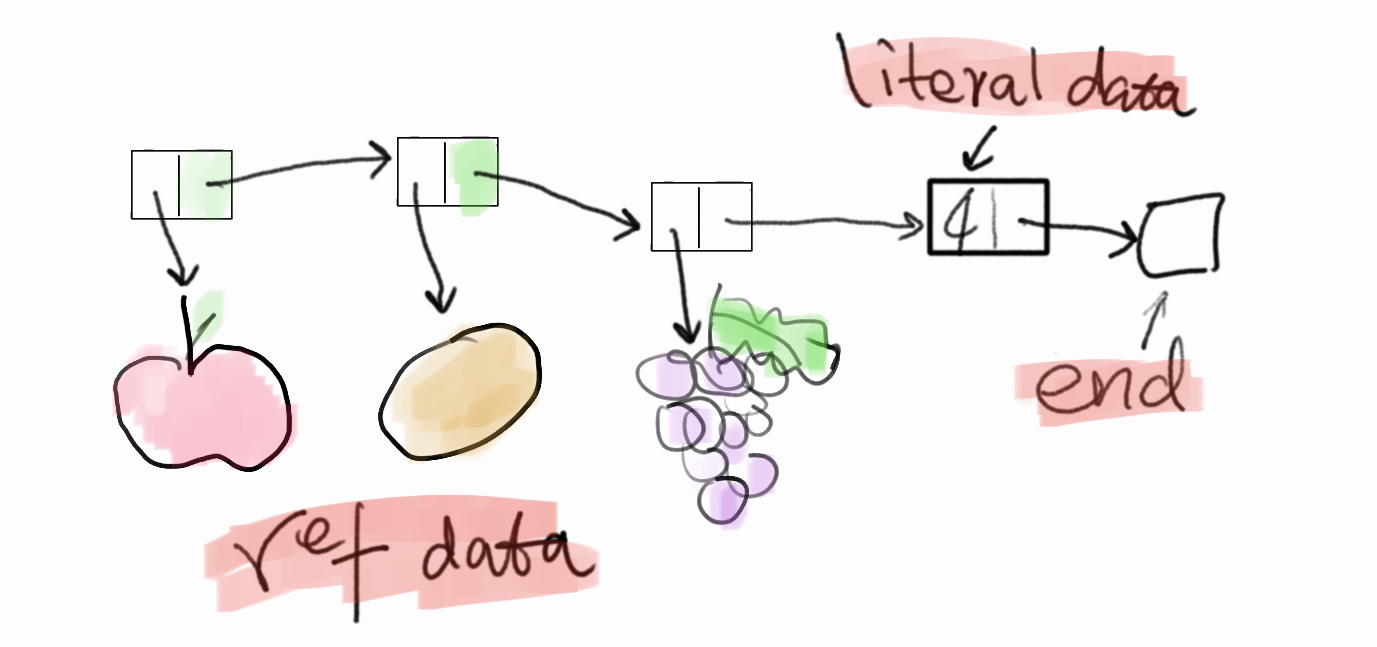 literal data
4
end
ref data